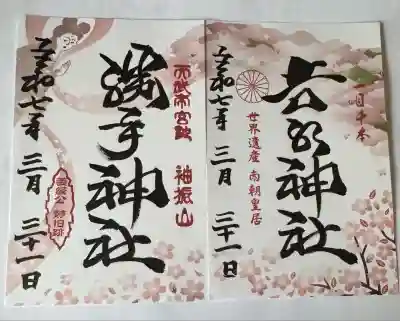 一目千本
吉水神社
世界遺産 南朝皇居
令和七年 三月 三十一日
袖振山
勝手神社
義経公 静旧跡
令和七年 三月 三十一日